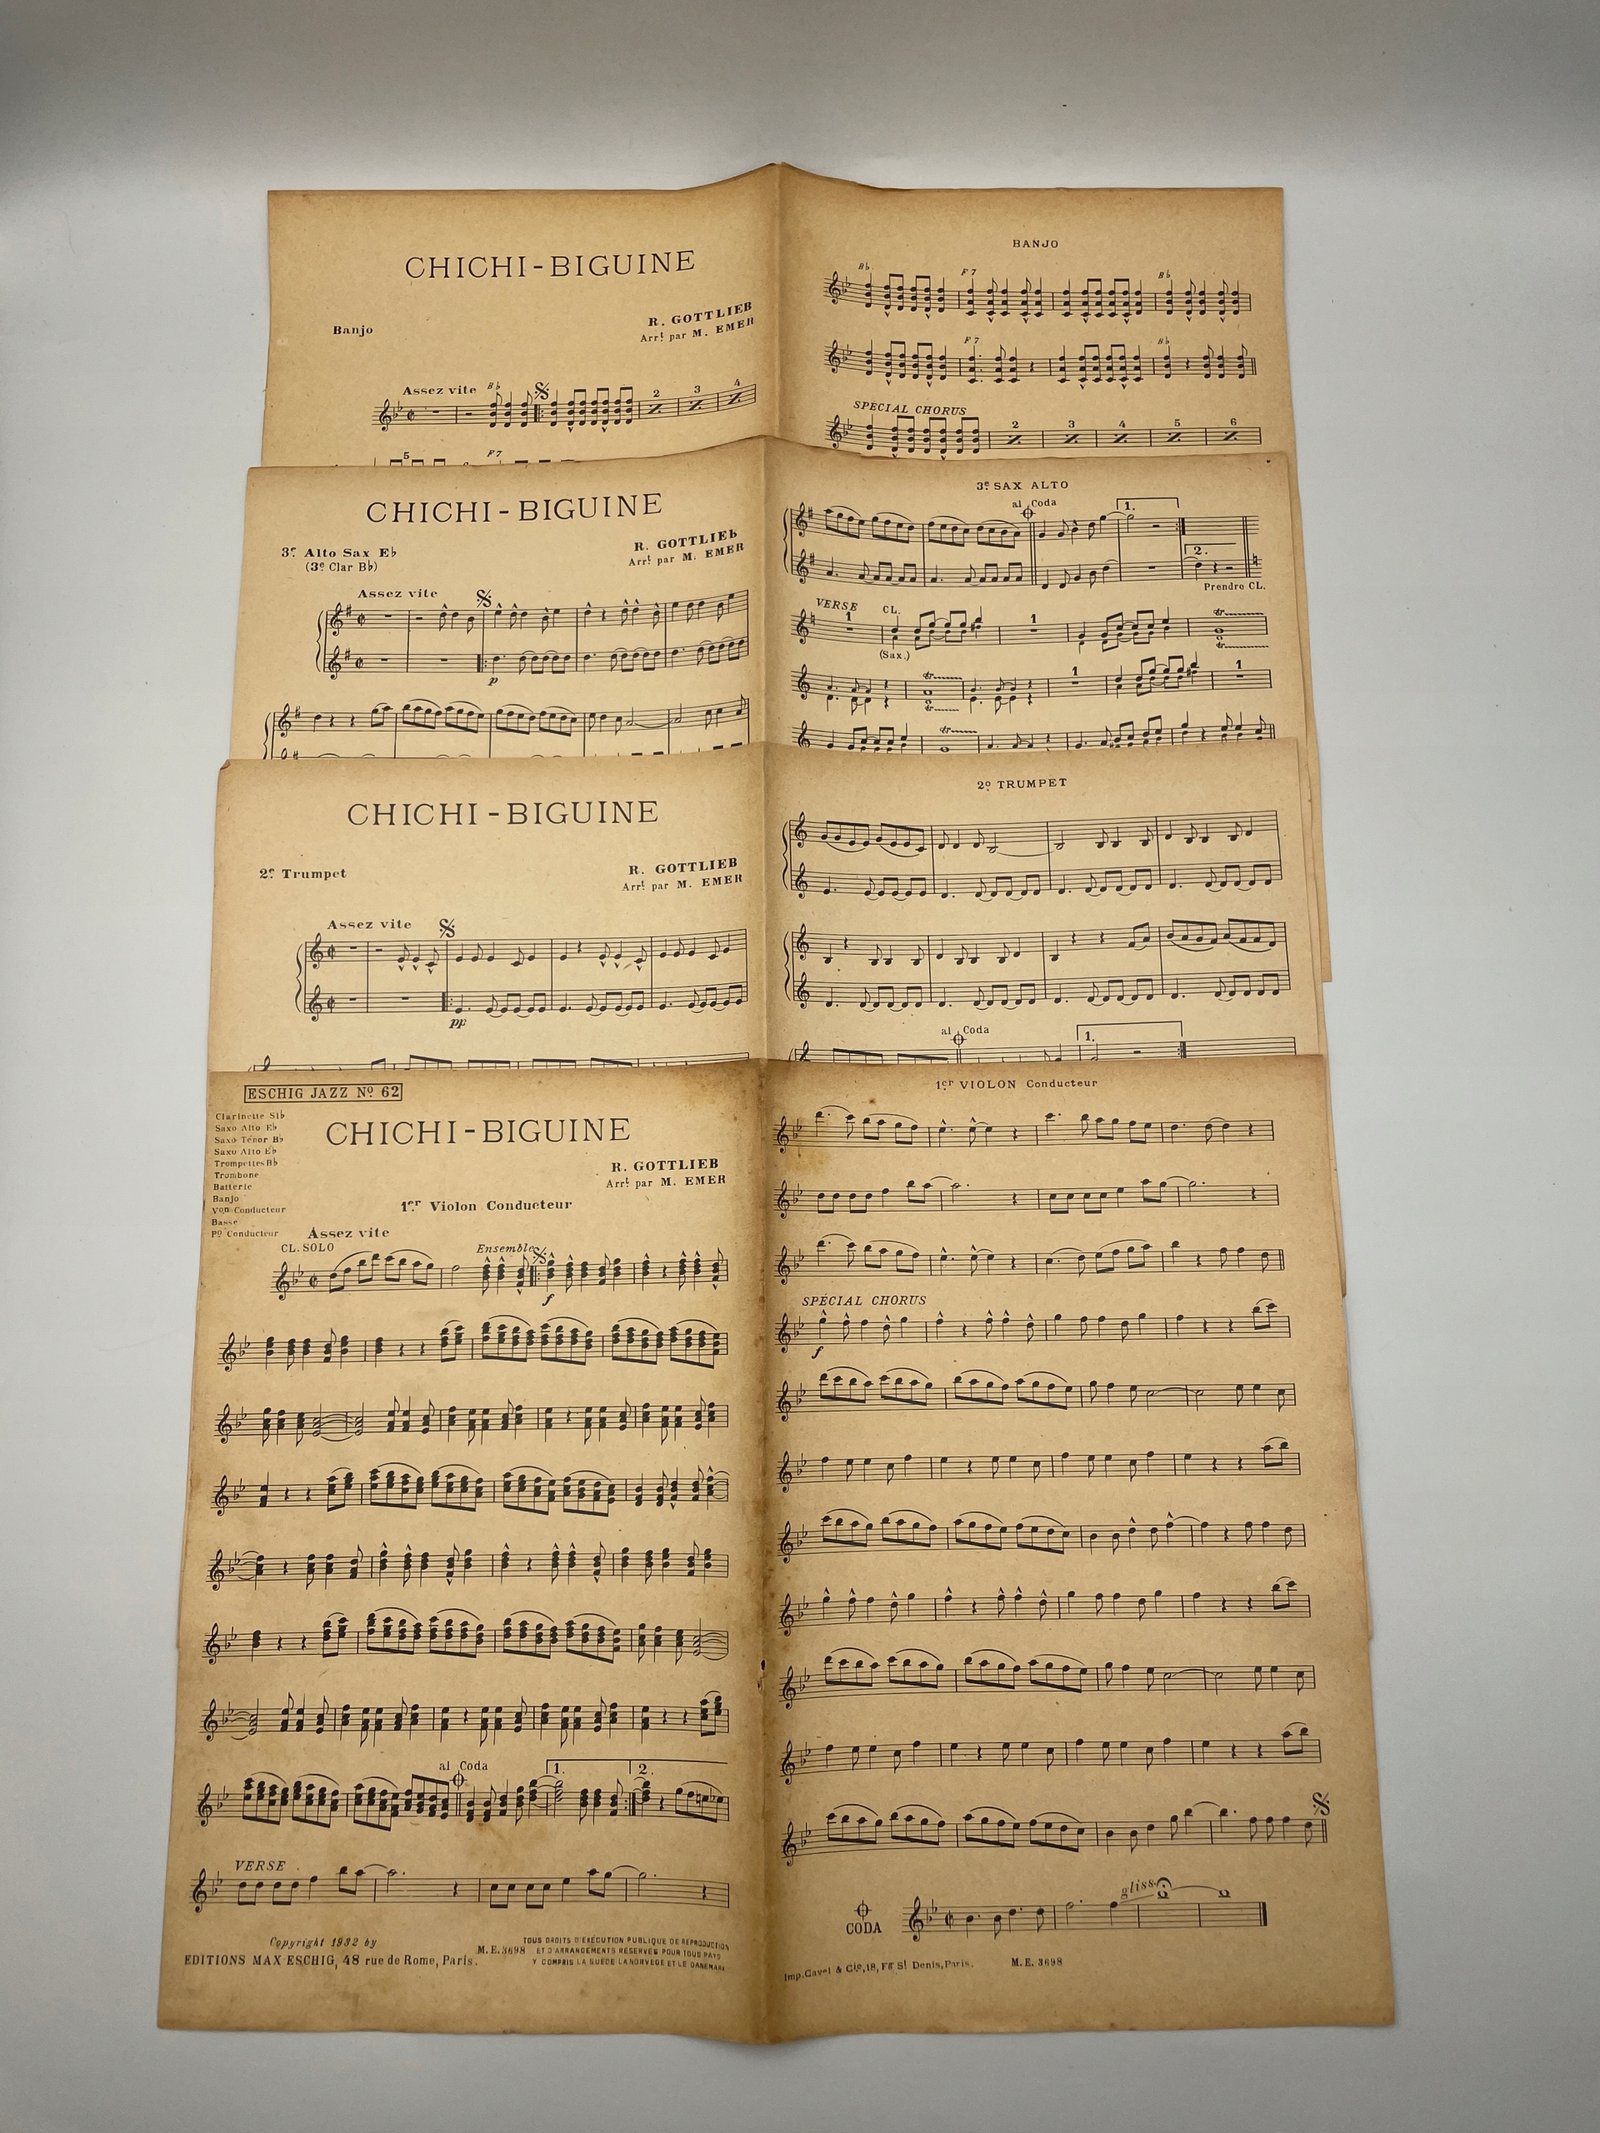 CHICHI-BIGUINE
Banjo
R. GOTTLIEB
Arrt par M. EMER
Assez vite
B♭
2
3
4
5
F7
BANJO
B♭
F7
B♭
F7
B♭
SPECIAL CHORUS
2
3
4
5
6
CHICHI-BIGUINE
3e Alto Sax E♭
(3e Clar B♭)
R. GOTTLIEB
Arrt par M. EMER
Assez vite
p
3e SAX ALTO
al Coda
1.
2.
Prendre CL.
VERSE
1
CL.
(Sax.)
1
tr
tr
tr
tr
1
1
tr
CHICHI-BIGUINE
2e Trumpet
R. GOTTLIEB
Arrt par M. EMER
Assez vite
pp
2e TRUMPET
al Coda
1.
ESCHIG JAZZ No 62
Clarinette Si♭
Saxo Alto E♭
Saxo Ténor B♭
Saxo Alto E♭
Trompettes B♭
Trombone
Batterie
Banjo
Von Conducteur
Basse
Po Conducteur
CHICHI-BIGUINE
R. GOTTLIEB
Arrt par M. EMER
1er Violon Conducteur
Assez vite
CL. SOLO
Ensemble
f
al Coda
1.
2.
VERSE
Copyright 1932 by
EDITIONS MAX ESCHIG, 48 rue de Rome, Paris.
M.E. 3698
TOUS DROITS D'EXÉCUTION PUBLIQUE DE REPRODUCTION
ET D'ARRANGEMENTS RÉSERVÉS POUR TOUS PAYS
Y COMPRIS LA SUÈDE LA NORVÈGE ET LE DANEMARK
1er VIOLON Conducteur
SPÉCIAL CHORUS
f
gliss.
CODA
Imp. Cavel & Cie, 18, Fg St Denis, Paris.
M.E. 3698